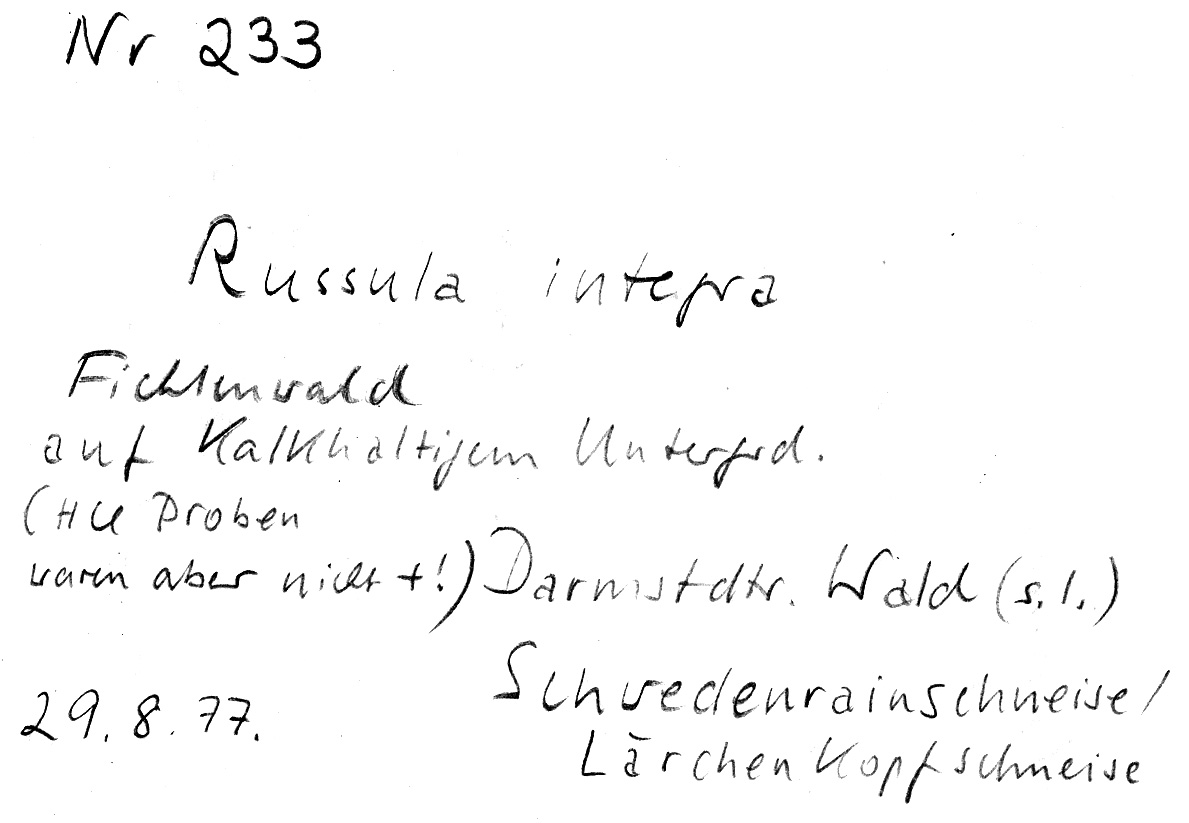 Nr 233
Russula integra
Fichtenwald
auf Kalkhaltigem Untergrd.
(HCl Proben
waren aber nicht +!) Darmstdtr. Wald (s.l.)
29.8.77. Schwedenrainschneise/
Lärchenkopfschneise